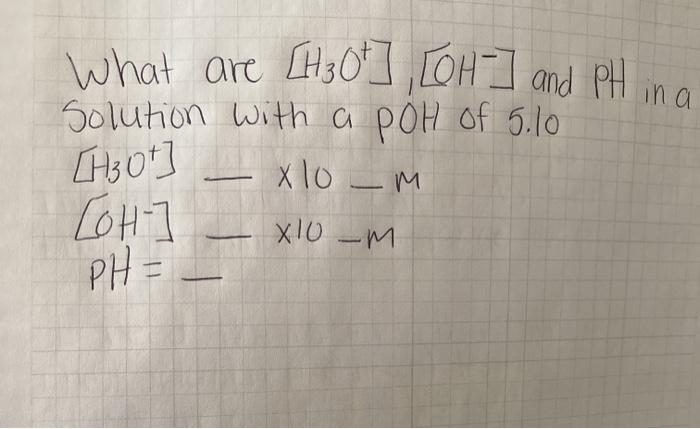 What are [H₃O⁺], [OH⁻] and pH in a
Solution with a pOH of 5.10
[H₃O⁺] __ x10 _ M
[OH⁻] __ x10 _ M
pH = __